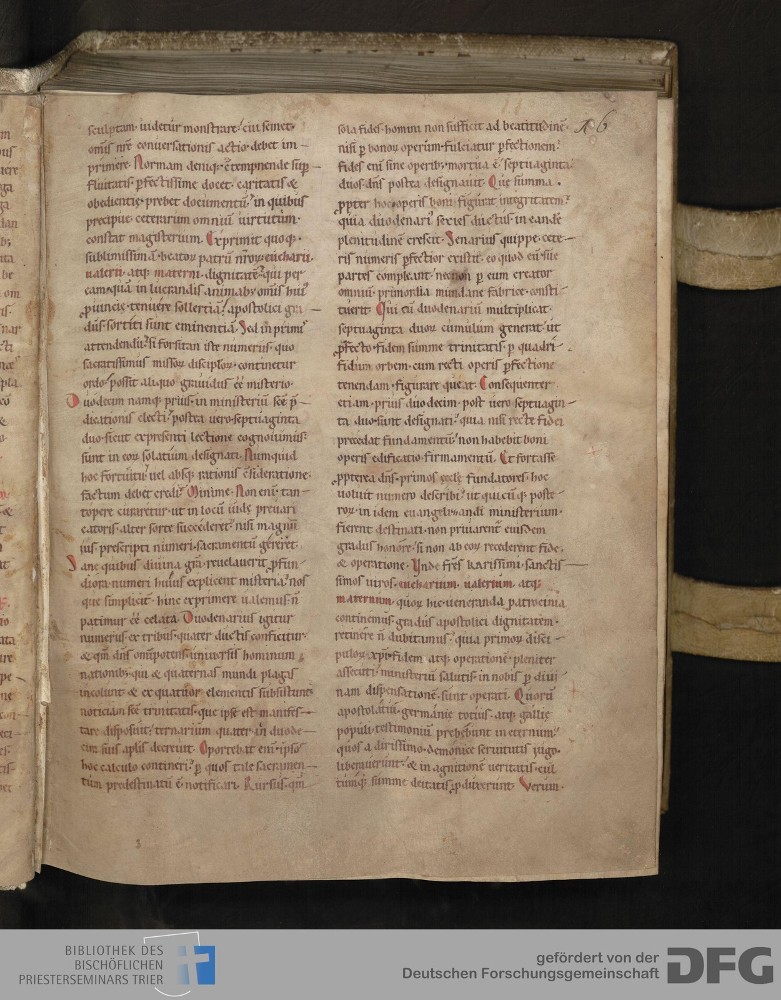 sculptam · uidetur monstrare · cui semet ·
om̄is nr̄e conuersationis actio · debet im-
primere · Normam deniq; ꝯtempnende sup̱-
fluitatis p̱fectissime docet · caritatis &
obedientie · prebet documentū · in quibus
precipue ceterarum omniū uirtutum ·
constat magisterium. Exprimit quoq; ·
sublimissimā · beatoꝝ patrū nr̄oꝝ eucharii ·
ualerii · atq; materni · dignitatē · qui per
eam quā in lucrandis animab; om̄is hui'
ꝓuincie · tenuere sollertiā · apostolici gra-
dus sortiti sunt eminentiā. Sed in primis
attendendū · si forsitan iste numerus · quo
sacratissimus missoꝝ discipłoꝝ · continetur
ordo · possit aliquo grauidus ee᷎ misterio ·
Duodecim namq; prius · in ministeriū sc̄e p̱-
dicationis electi · postea uero · septuaginta
duo · sicut ex presenti lectione cognouimus ·
sunt in eoꝝ solatium designati. Numquid
hoc fortuitu · uel absq; rationis ꝯsideratione ·
factum debet credi? Minime. Non eni᷎ tan-
topere curaretur · ut in locū iude preuari
catoris · alter sorte succederet · nisi magnū
ius prescripti numeri · sacramentū gereret.
Sane quibus diuina gr̄a · reuelauerit ꝓfun-
diora · numeri huius explicent misteria · nos
que simpliciter hinc exprimere ualemus · n̄
patimur ee᷎ celata. Duodenarius igitur
numerus · ex tribus · quater ductis conficitur ·
& qm̄ dn̄s om̄ipotens · uniuersis hominum
nationib; · qui & quaternas mundi plagas
incolunt · & ex quatuor elementis subsistunt ·
noticiam sc̄e trinitatis · que ipse est · manifes-
tare disposuit · ternarium quater · in duode-
cim suis apłis decreuit. Oportebat eni᷎ ipsos
hoc calculo contineri · p̱ quos tale sacramen-
tum predestinatū ē · notificari. Rursus · qm̄
sola fides · homini non sufficit ad beatitudinē ·
nisi p̱ bonoꝝ operum · fulciatur p̱fectionem ·
fides eni᷎ sine operib; · mortua ē · septuaginta
duos · dn̄s postea designauit. Que summa ·
ꝓpter hoc · operis boni figurat integritatem ·
quia duodenarii series ductus · in eandē
plenitudinē crescit. Senarius quippe · cete-
ris numeris p̱fectior existit · eo quod eū sue
partes compleant · necnon p̱ eum creator
omniū · primordia mundane fabrice · consti-
tuerit. Qui cū duodenariū multiplicat ·
septuaginta duoꝝ cumulum generat · ut
ꝓfecto · fidem summe trinitatis p̱ quadri-
fidum orbem · cum recti operis p̱fectione
tenendam · figurare queat. Consequenter
etiam · prius duodecim · post uero septuagin-
ta duo · sunt designati · quia nisi recte fidei
precedat fundamentū · non habebit boni
operis edificatio · firmamentū. Et fortasse
ꝓpterea dn̄s · primos eccłe fundatores · hoc
uoluit numero describi · ut quicūq; poste-
roꝝ · in idem euangelizandi ministerium ·
fierent destinati · non priuarent eiusdem
gradus honore · si non ab eoꝝ recederent fide ·
& operatione. Unde fr̄es karissimi · sanctis-
simos uiros · eucharium · ualerium · atq;
maternum · quoꝝ hic ueneranda patrocinia
continemus · gradus apostolici dignitatem ·
retinere n̄ dubitamus · quia primoꝝ disci-
puloꝝ xp̄i · fidem atq; operationē · pleniter
assecuti · ministeriū salutis · in nobis p̱ diui
nam dispensationē · sunt operati. Quorū
apostolatui · germanie tocius · atq; gallie
populi · testimoniū prebebunt in eternum ·
quos a dirissimo · demonice seruitutis iugo ·
liberauerunt · & in agnitionē ueritatis · cul
tumq; summe deitatis · ꝓduxerunt. Verum ·
BIBLIOTHEK DES
BISCHÖFLICHEN
PRIESTERSEMINARS TRIER
gefördert von der
Deutschen Forschungsgemeinschaft
DFG